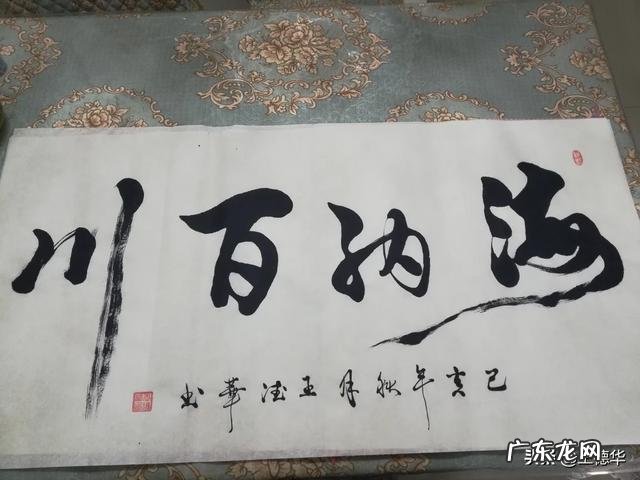 海纳百川
己亥年秋月王德華书
广东龙网
@王德华